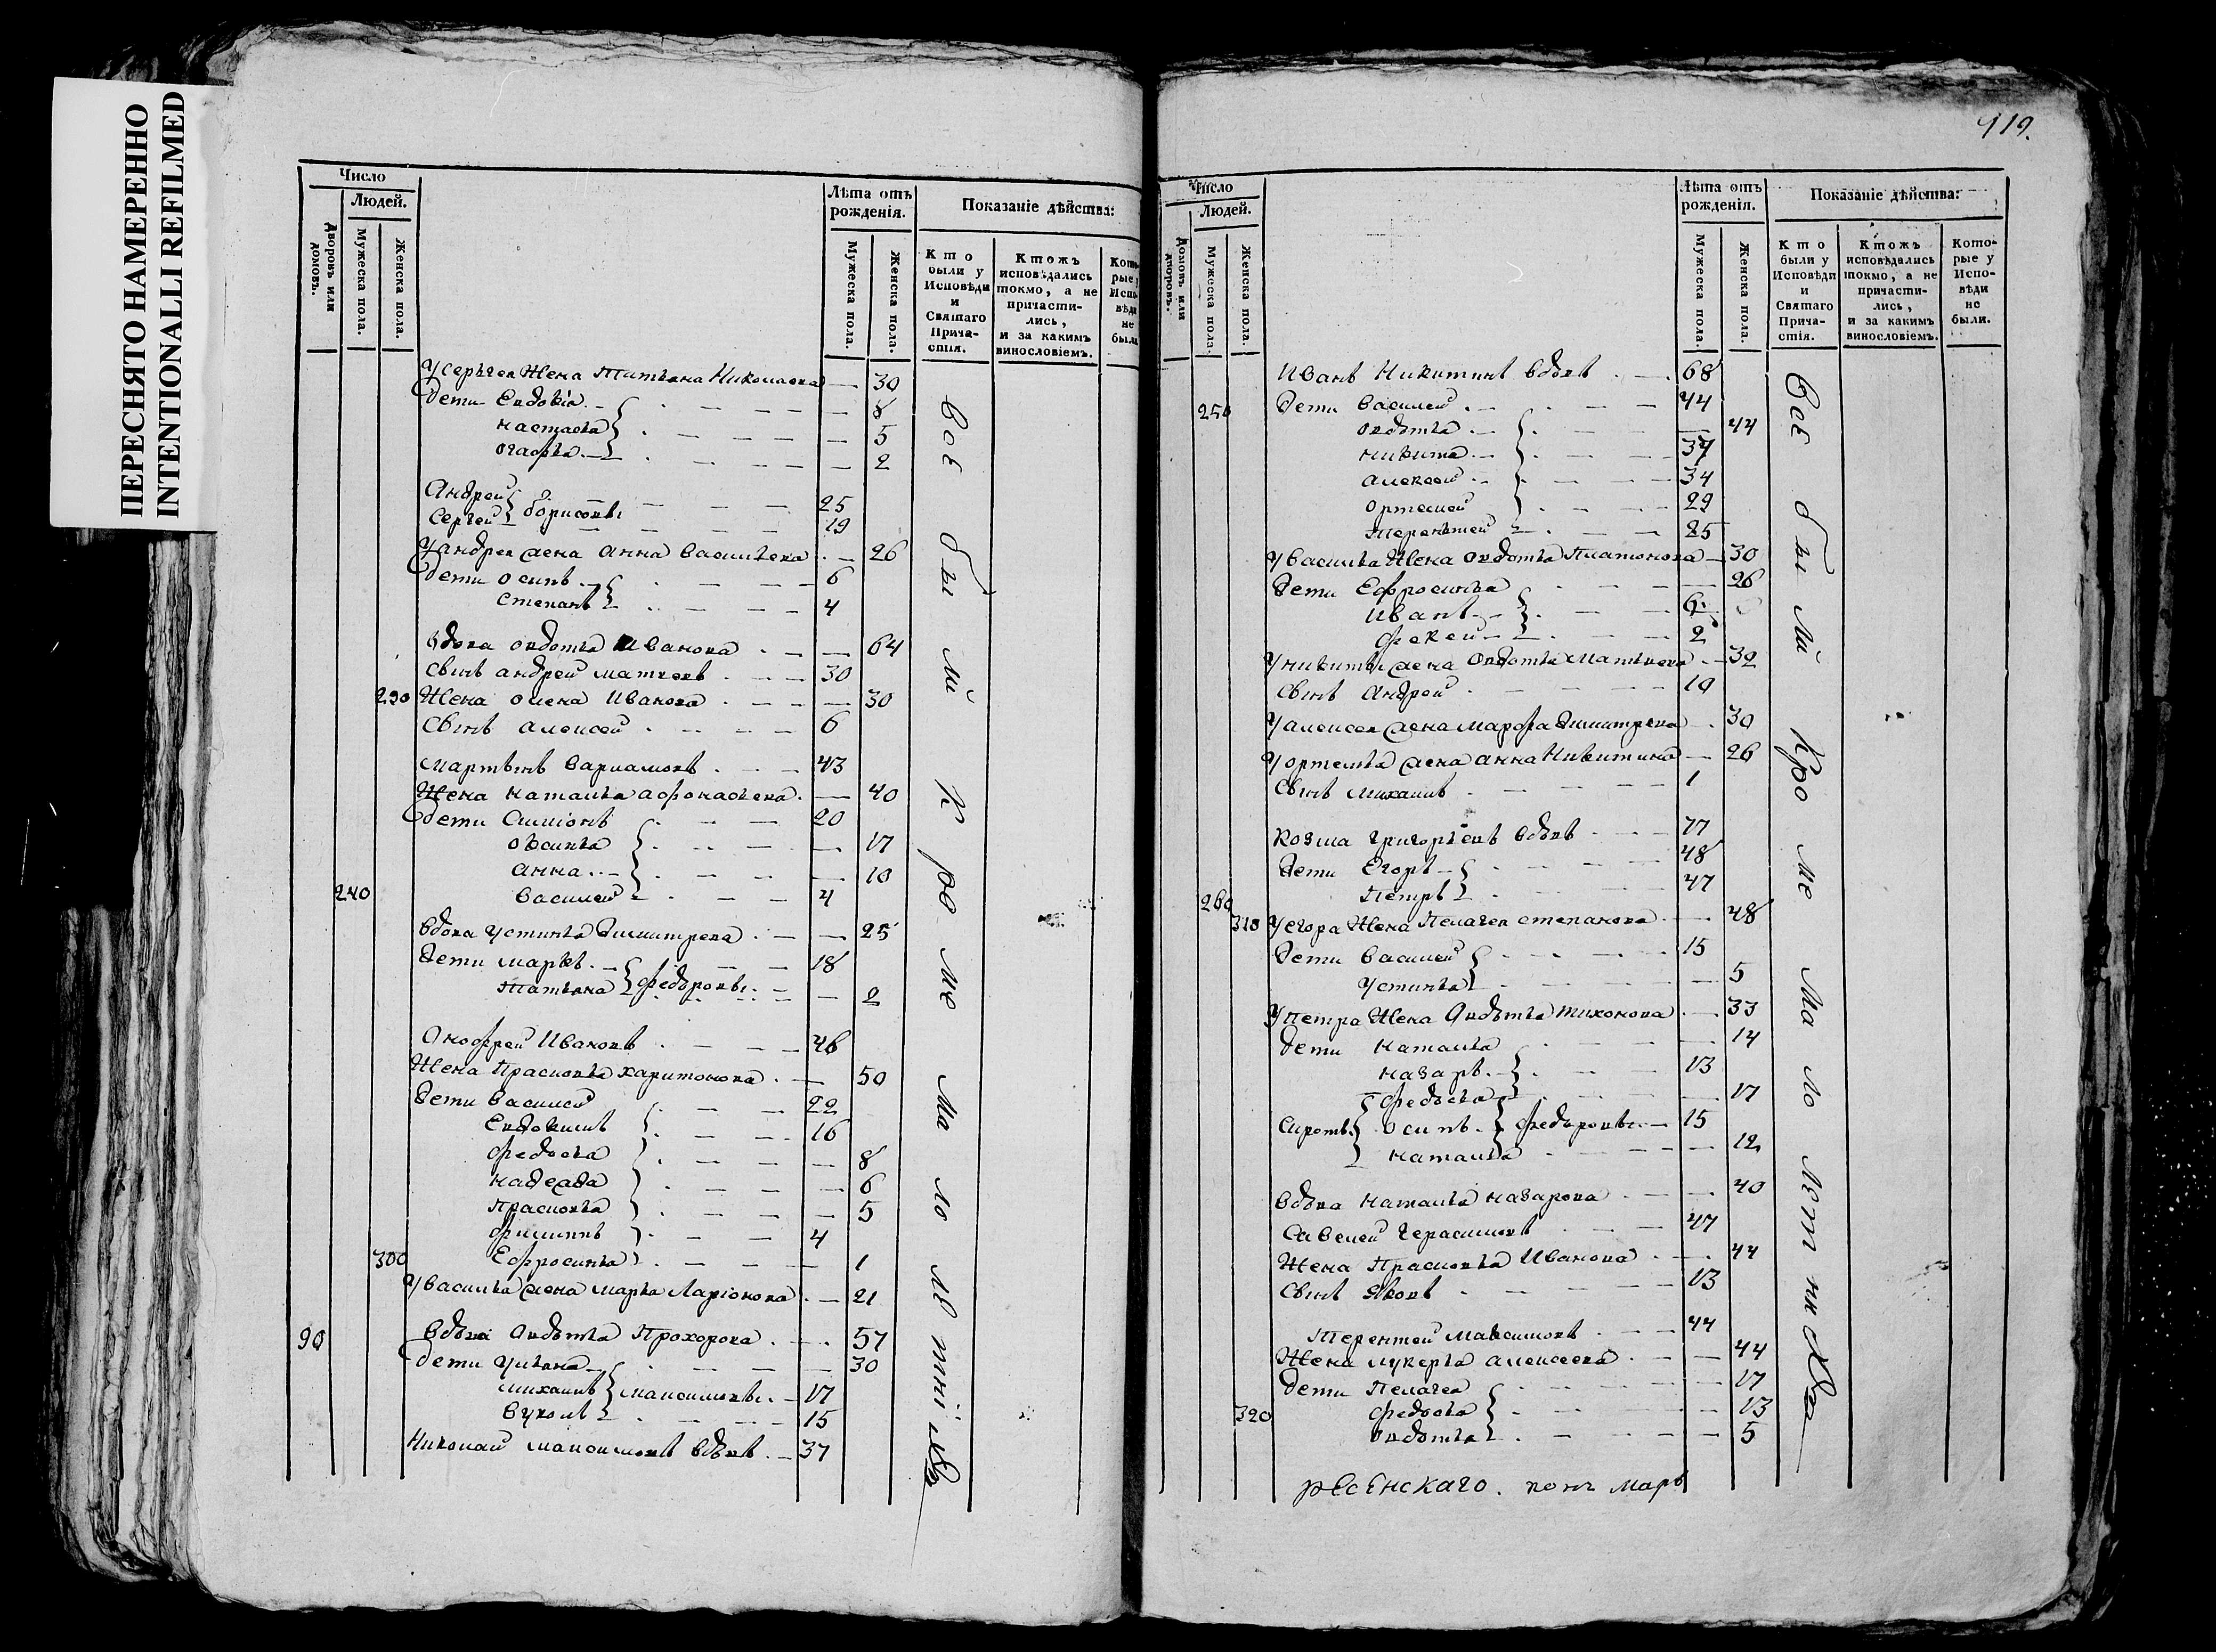 ПЕРЕСНЯТО НАМЕРЕННО
INTENTIONALLI REFILMED
Число
Людей.
Дворовъ или домовъ.
Мужеска пола.
Женска пола.
Лѣта отъ рожденія.
Мужеска пола.
Женска пола.
Показаніе дѣйства:
Кто были у Исповѣди и Святаго Прича-стія.
Ктожъ исповѣдались токмо, а не причасти-лись, и за какимъ винословіемъ.
Кото-рые у Испо-вѣди не были.
У Сергѣея Жена Татьяна Николаева — 30
Дети Евдокія — 8
Настасья — 5
Огафья — 2
Андрей 25
Сергей } борисовы 19
У андрея жена Анна Васильева — 26
Дети Осипъ 6
Степанъ 4
Вдова Овдотья Иванова — 64
Сынъ андрей матвеевъ 30
290 Жена Олена Иванова — 30
Сынъ Алексей 6
Мартынъ Варламовъ 43
Жена Наталья Афонасьева — 40
Дети Симіонъ 20
Овсинья — 17
Анна — 10
240 Василей 4
Вдова Устинья Димитрева — 25
Дети Маркъ 18
Татьяна } федоровы — 2
Онофрей Ивановъ 46
Жена Прасковья харитонова — 50
Дети Василей 22
Евдокимъ 16
Федосья — 8
Надежда — 6
Прасковья — 5
Филиппъ 4
300 Ефросинья — 1
У Василья жена Марья Ларіонова — 21
90 Вдова Овдотья Прохорова — 57
Дети Ульяна — 30
Михаилъ } максимовы 17
Вуколъ 15
Николай максимовъ вдовъ 37
Всѣ были кроме малолетнихъ
419.
Число
Людей.
Домовъ или дворовъ.
Мужеска пола.
Женска пола.
Лѣта отъ рожденія.
Мужеска пола.
Женска пола.
Показаніе дѣйства:
Кто были у Исповѣди и Святаго Прича-стія.
Ктожъ исповѣдались токмо, а не причасти-лись, и за какимъ винословіемъ.
Кото-рые у Испо-вѣди не были.
Иванъ Никитинъ вдовъ 68
250 Дети Василей 44
Овдотья — 44
Никита 37
Алексей 34
Ортемей 29
Терентей 25
У Василья Жена Овдотья Платонова — 30
Дети Ефросинья — 26
Иванъ 6
Фекей 2
У никиты жена Овдотья Матвеева — 32
Сынъ Андрей 10
У алексея жена Марфа Димитрева — 30
У ортемья жена Анна Никитина — 26
Сынъ Михаилъ 1
Козма григорьевъ вдовъ 77
Дети Егоръ 48
260 Петръ 47
310 У егора Жена Пелагея степанова — 48
Дети Василей 15
Устинья — 5
У петра Жена Овдотья тихонова — 33
Дети Наталья — 14
Назаръ 13
Федосья — 17
Сироты { Осипъ } Федоровы 15
Наталья — 12
Вдова Наталья Назарова — 40
Савелей Герасимовъ 47
Жена Прасковья Иванова — 44
Сынъ Яковъ 13
Терентей Максимовъ 44
Жена Лукерья Алексеева — 44
Дети Пелагея — 17
320 Федосья — 13
Овдотья — 5
Всѣ были Кроме Малолетнихъ